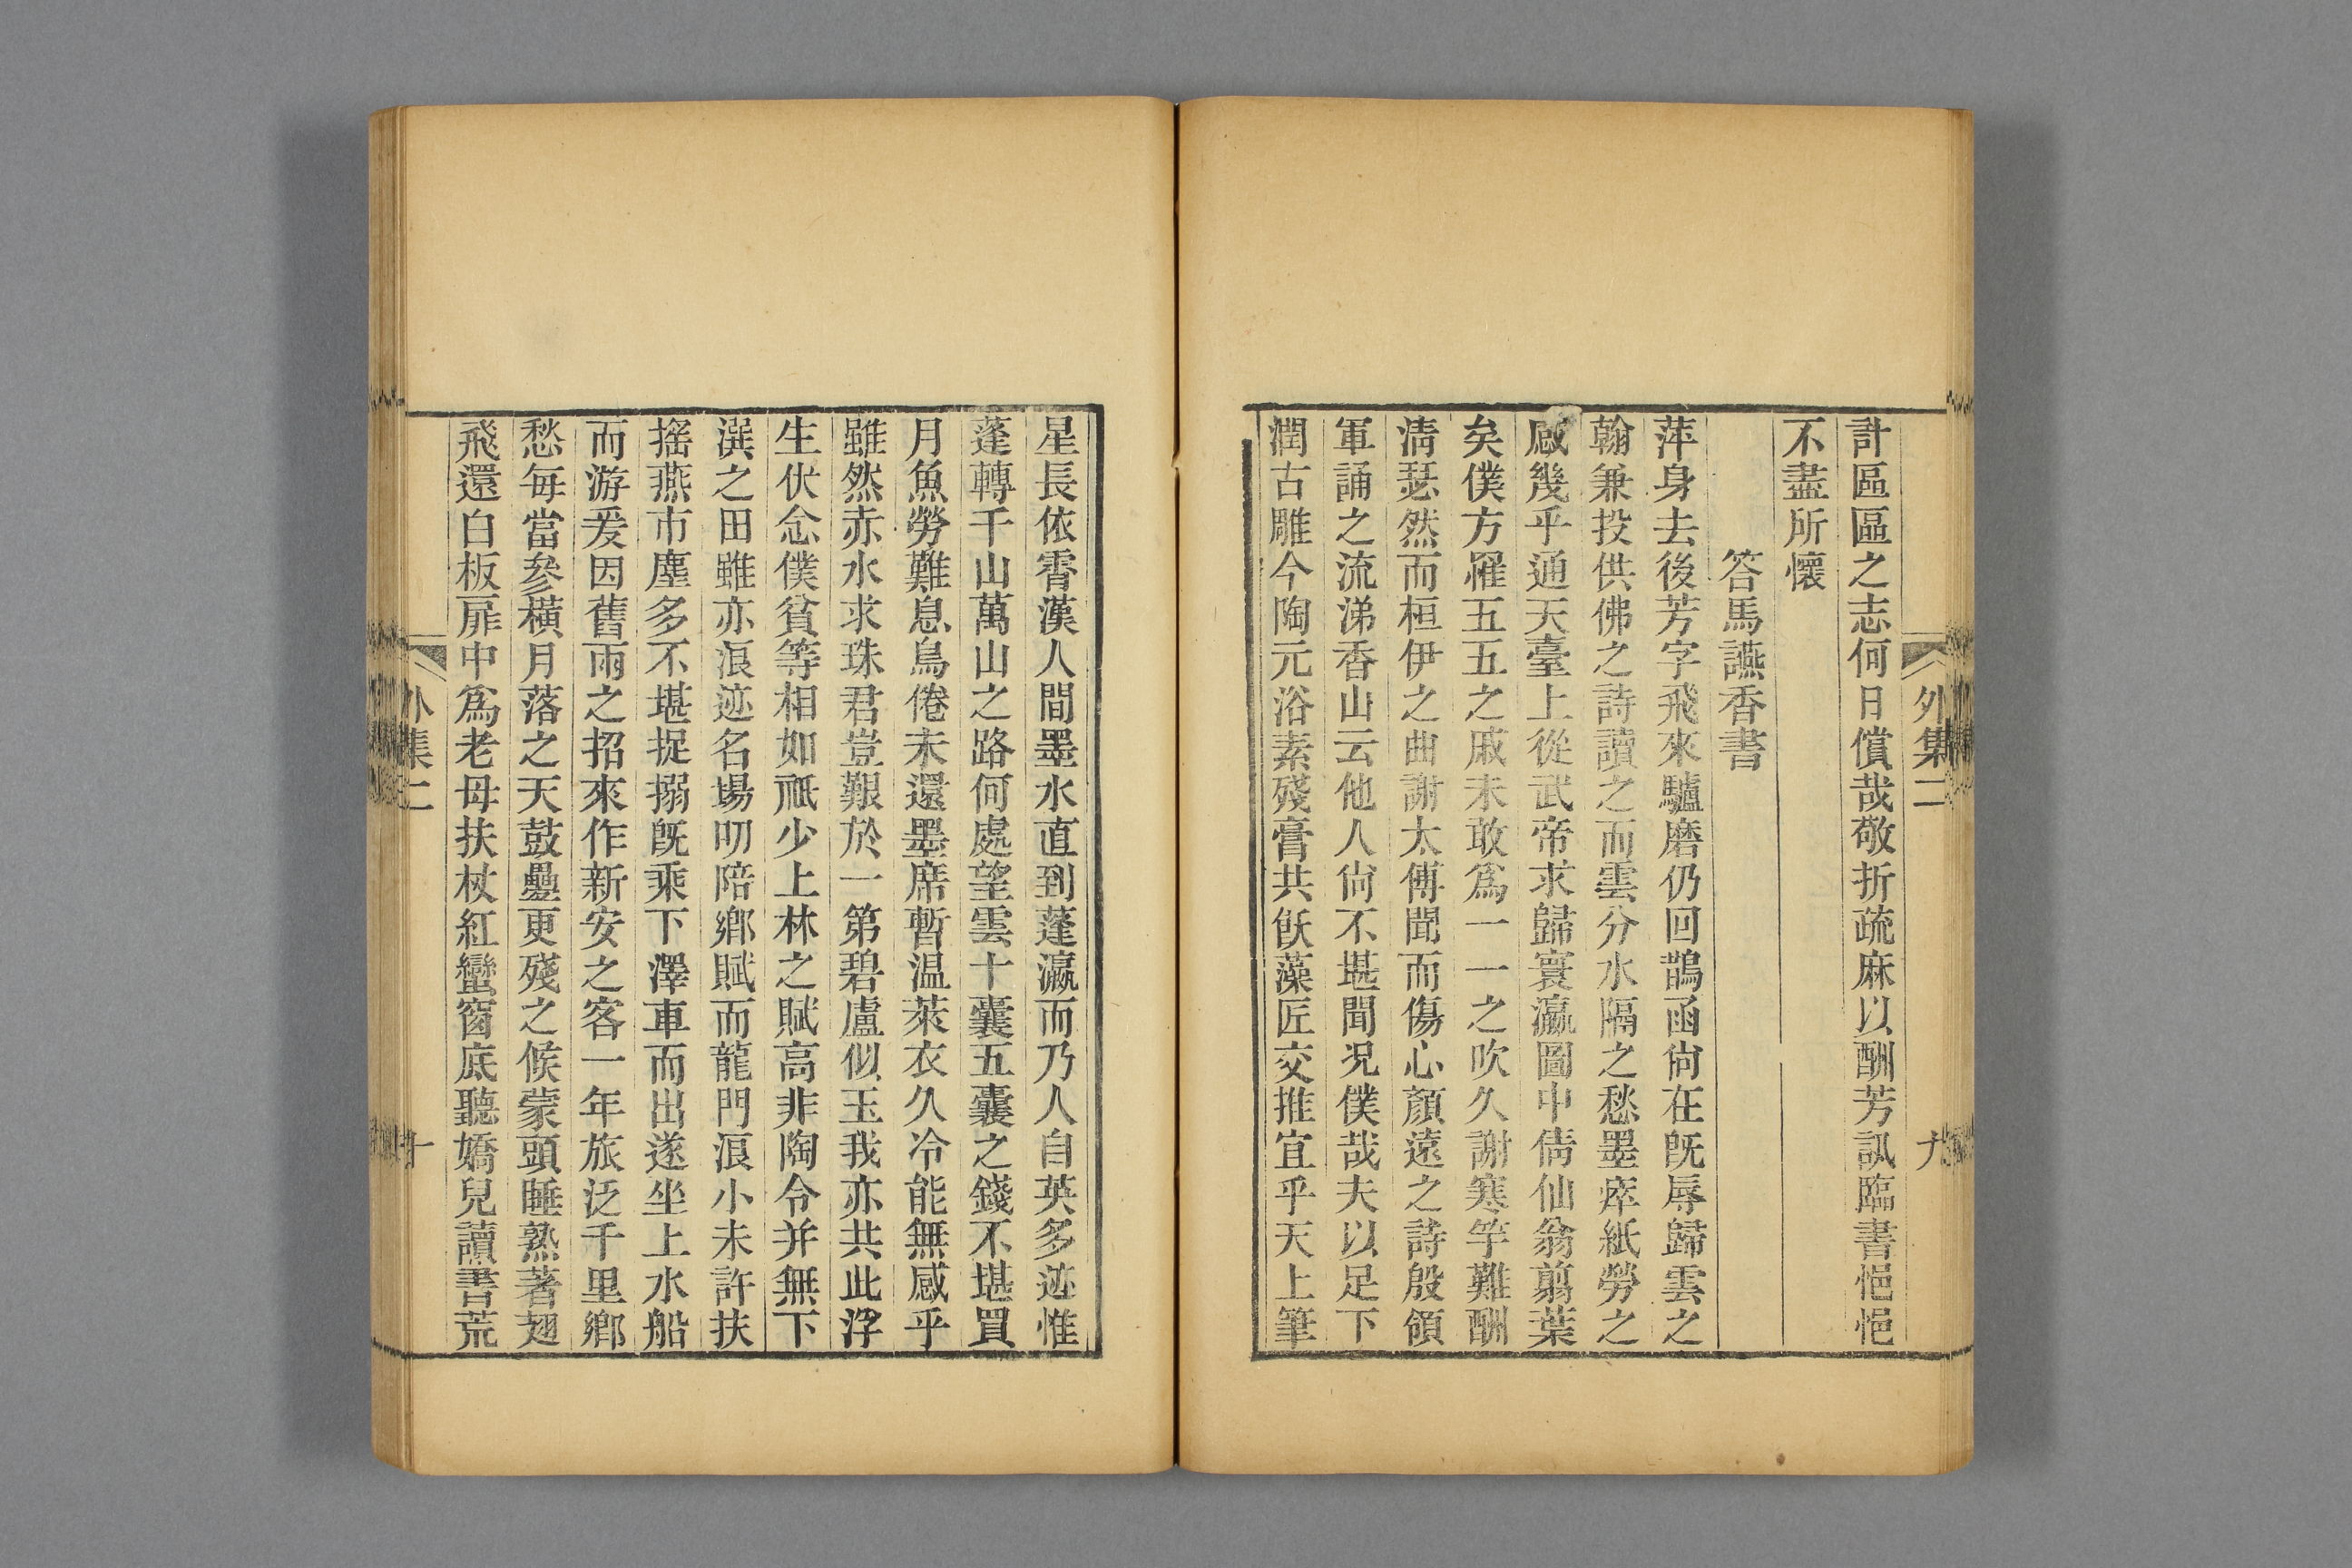 外集二
九
計區區之志何日償哉敬折疏麻以酬芳訊臨書悒悒
不盡所懷
答馬讌香書
萍身去後芳字飛來驢磨仍回鵲函尙在旣辱歸雲之
翰兼投供佛之詩讀之而雲分水隔之愁墨瘁紙勞之
感幾乎通天臺上從武帝求歸寰瀛圖中倩仙翁翦葉
矣僕方罹五五之戚未敢爲一一之吹久謝寒竽難酬
淸瑟然而桓伊之曲謝太傅聞而傷心顏遠之詩殷領
軍誦之流涕香山云他人尙不堪聞况僕哉夫以足下
潤古雕今陶元浴素殘膏共飫藻匠交推宜乎天上筆
星長依霄漢人間墨水直到蓬瀛而乃人自英多迹惟
蓬轉千山萬山之路何處望雲十囊五囊之錢不堪買
月魚勞難息鳥倦未還墨席暫温萊衣久冷能無感乎
雖然赤水求珠君豈艱於一第碧盧似玉我亦共此浮
生伏念僕貧等相如祗少上林之賦高非陶令并無下
潠之田雖亦浪迹名場叨陪鄕賦而龍門浪小未許扶
搖燕市塵多不堪捉搦旣乘下澤車而出遂坐上水船
而游爰因舊雨之招來作新安之客一年旅泛千里鄕
愁每當參橫月落之天鼓疊更殘之候蒙頭睡熟著翅
飛還白板扉中爲老母扶杖紅蠻窗底聽嬌兒讀書荒
外集二
十